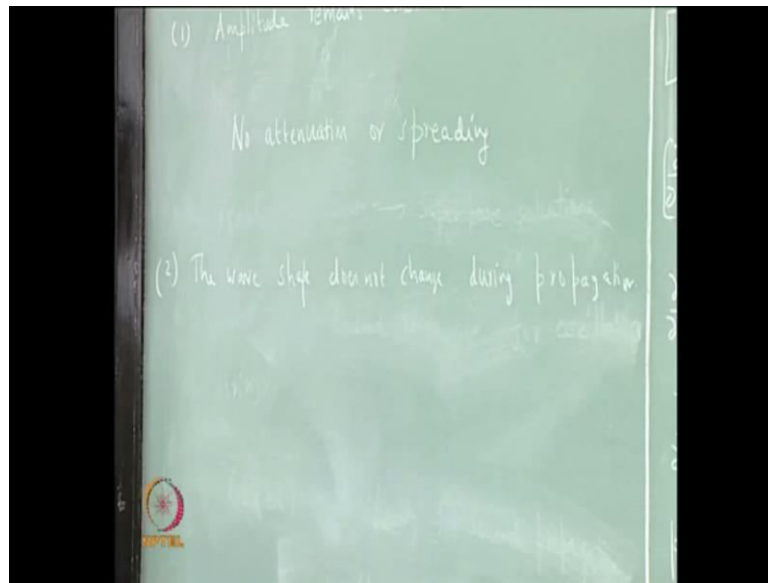 (1) Amplitude remains
No attenuation or spreading
(2) The wave shape does not change during propagation.
NPTEL